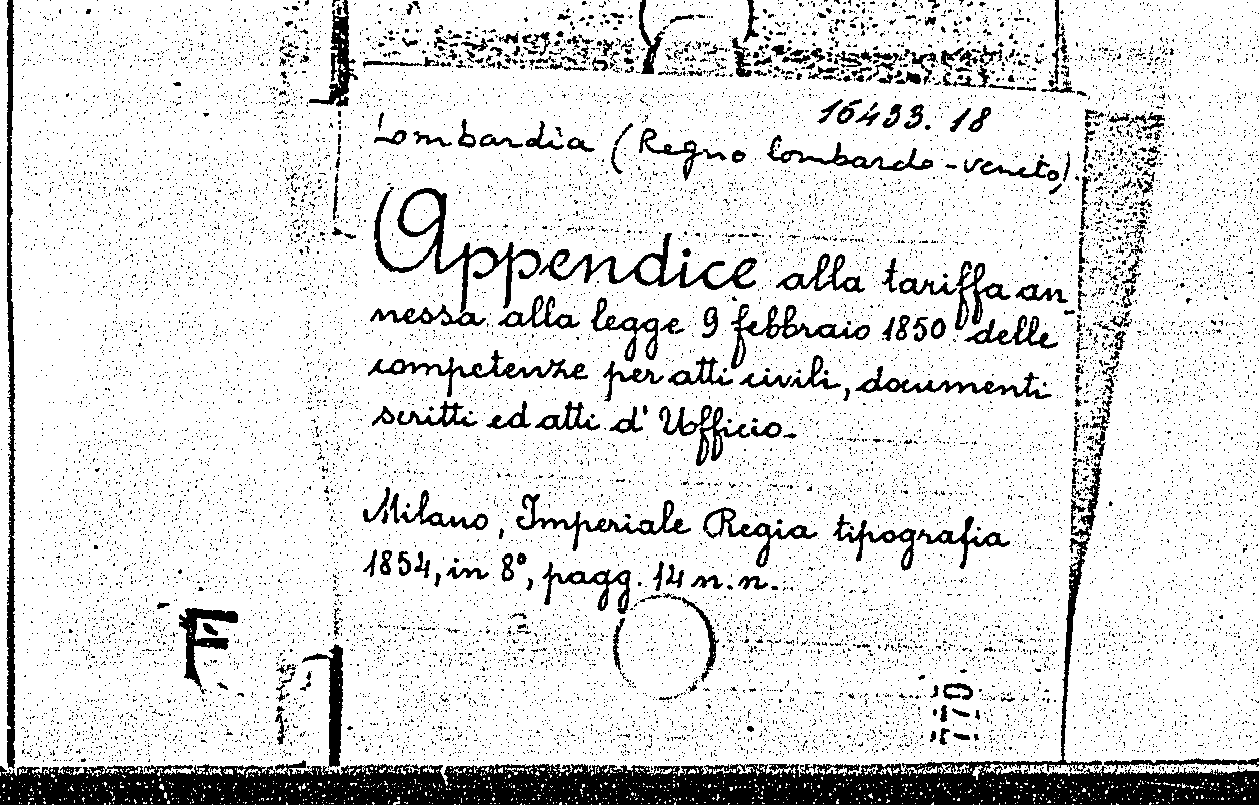 16433. 18
Lombardia (Regno lombardo-veneto).
Appendice alla tariffa an-
nessa alla legge 9 febbraio 1850 delle
competenze per atti civili, documenti
scritti ed atti d' Ufficio.
Milano, Imperiale Regia tipografia
1854, in 8°, pagg. 14 n.n.